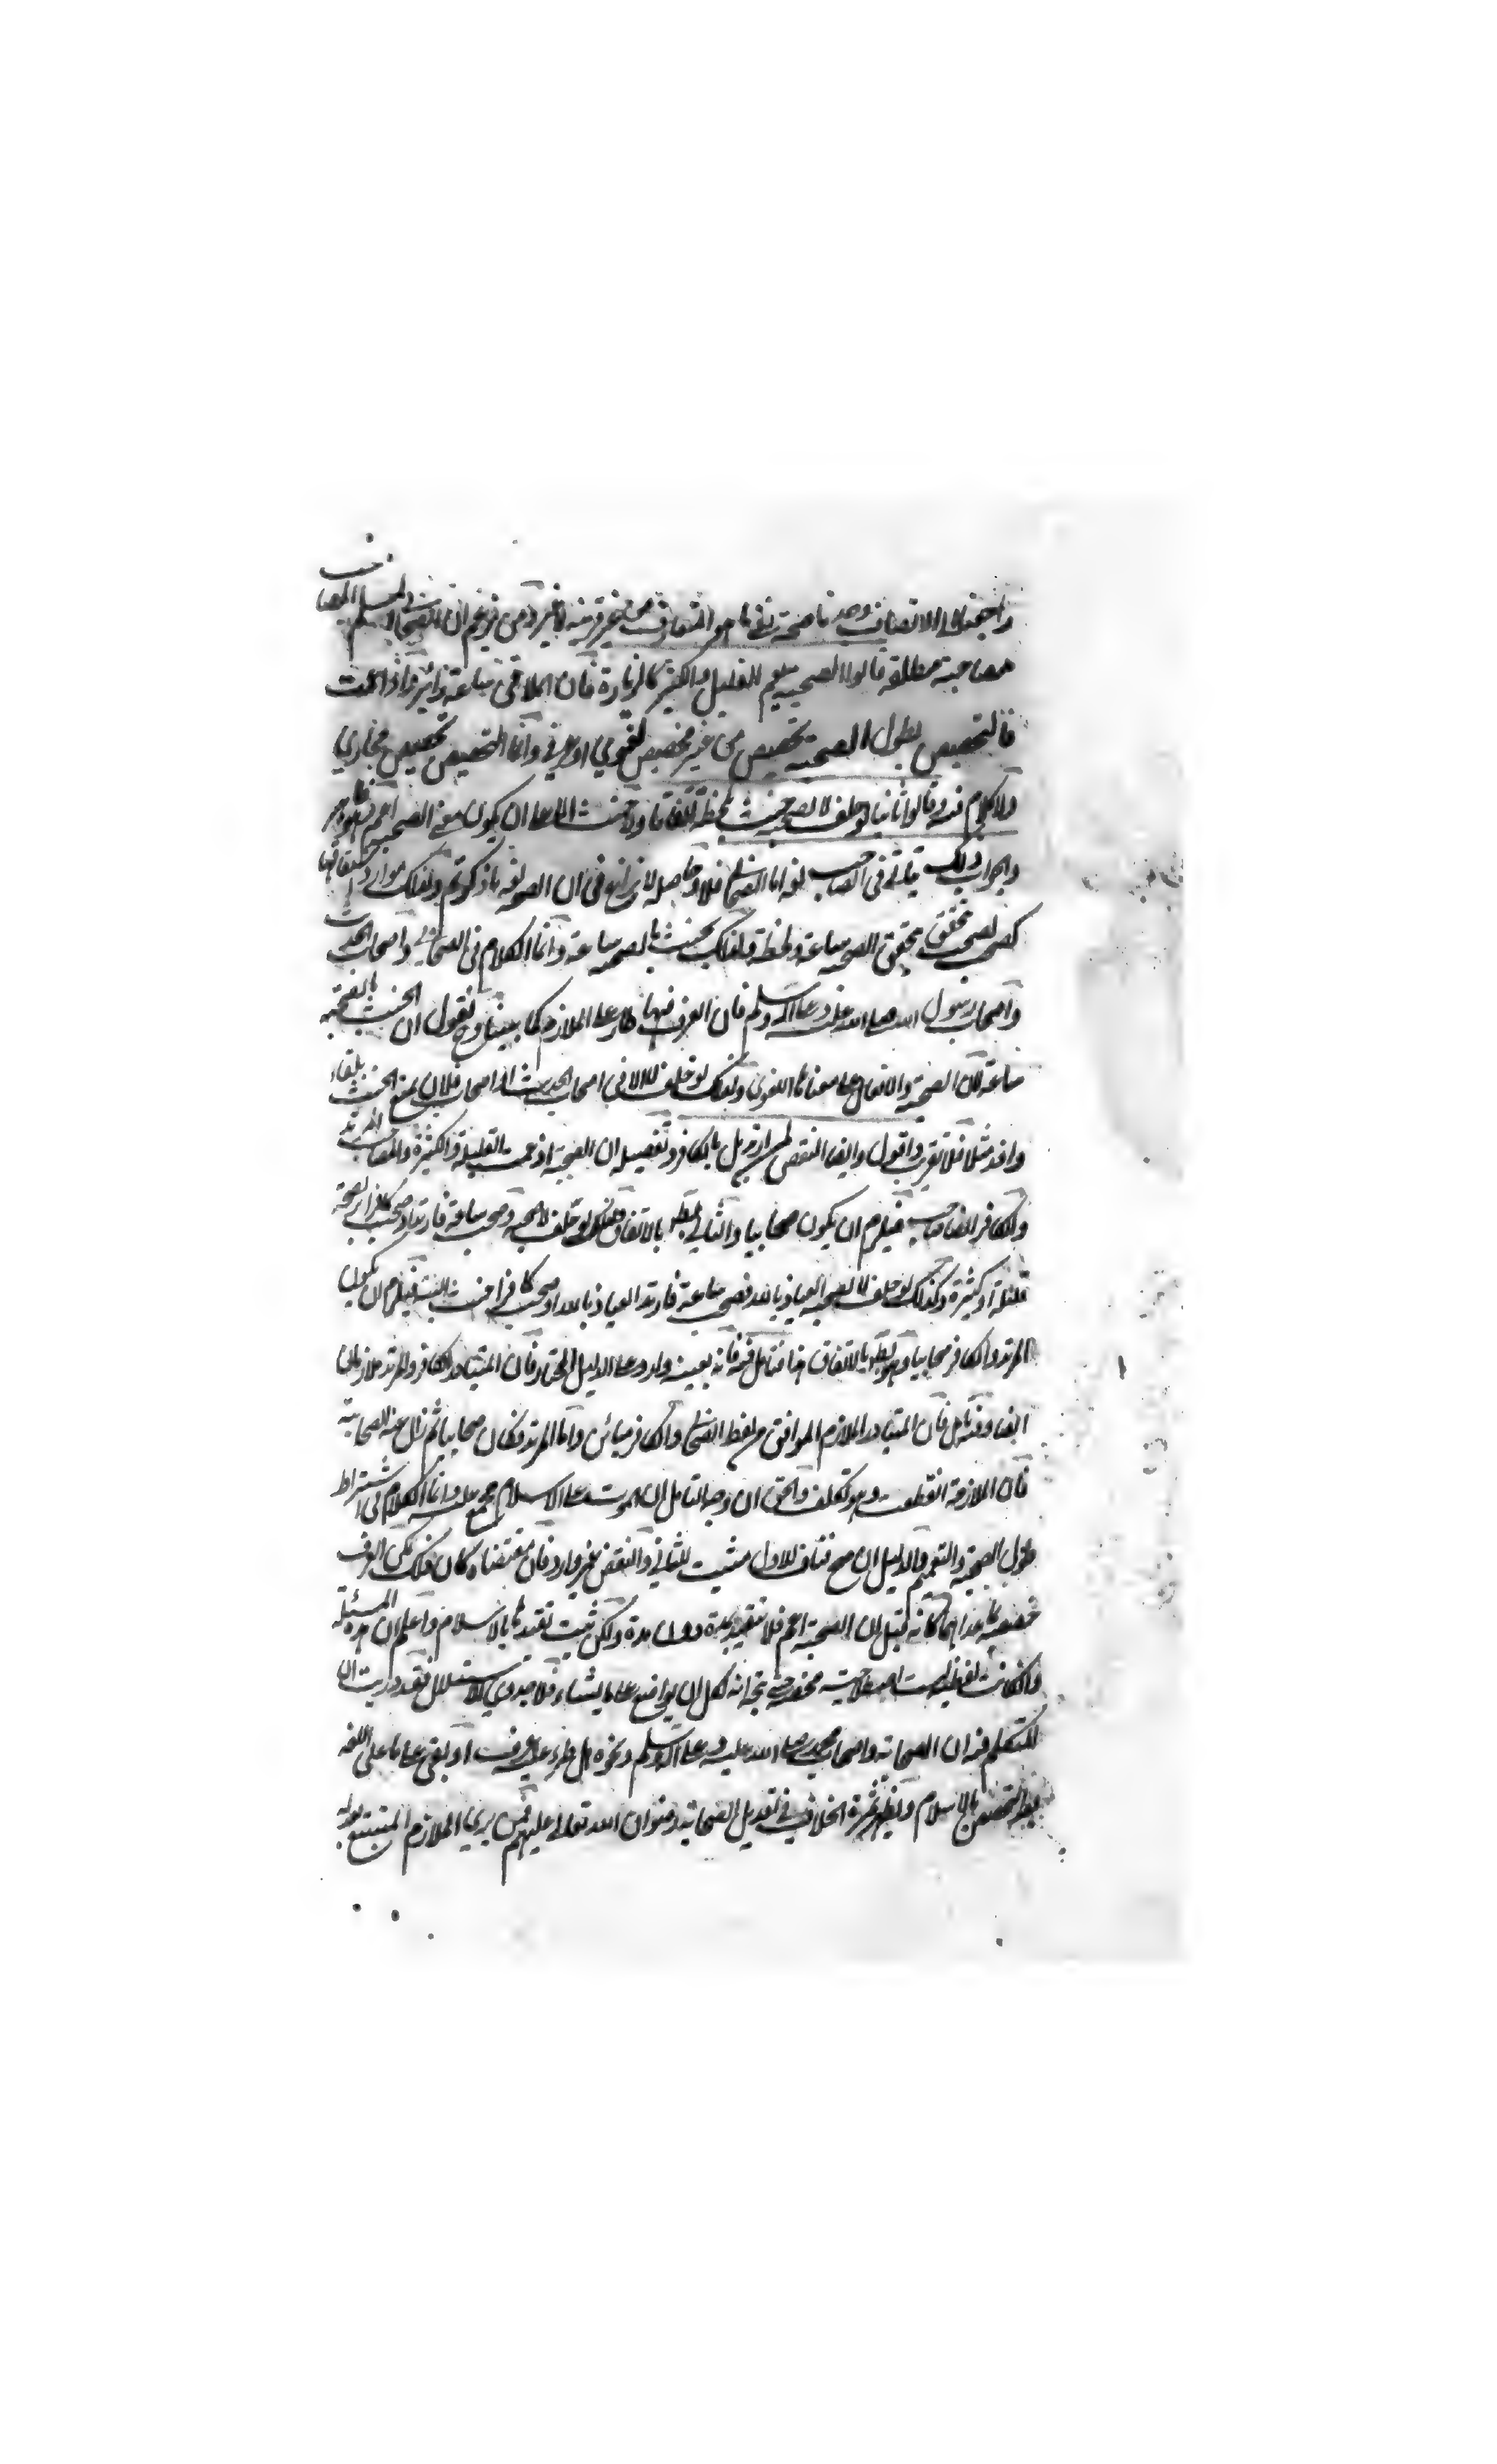 الى الانصاف وجدنا صحة نفيها هو المتعارف من غير قرينة ان الصحابي المسلم المصاحب
مصاحبة مطلقة قالوا الصحبة يعم للقليل والكثير كالزيارة فان الملاقي ساعة زائر واذا عمت
فالتخصيص بطول الصحبة تخصيص من غير مخصص لغوي او عرفي وانما التخصيص تخصيص مجازي
ولا كلام فيه وقالوا ثانيا لو حلف لا يصحبه حنث بلحظة اتفاقا ولا حنث الا على ان يكون معنى الصحبة اعم
والجواب ذلك في الصاحب لغة اما الصحابي فلا وحاصله لا نزاع في ان الصحبة لغة ما ذكرتم وكذلك موارد
كصحب يصحب بتحقق الصحبة ساعة ولحظة ولذلك يحنث بالصحبة ساعة وانما الكلام في الصحابي واصحاب الحديث
واصحاب رسول الله صلى الله عليه وعلى آله وسلم فان العرف فيها طار على الملازم كما بينا نقول ان الحنث بالصحبة
ساعة لان الصحبة والافعال على معناها اللغوي ولذلك لو حلف اصحاب الحديث او اصحاب فلان يمنع الحنث بلقاء
واحد مثلا فلا تقريب واقول وايضا النقض بالكافر وتفصيله ان الصحبة اذ عمت القليلة والكثيرة والمصاحب المرتد
والكافر ايضا صاحب فيلزم ان يكون صحابيا والثاني بط بالاتفاق لو حلف لا يصحبه وصحب ساعة فارتد او صحب كافرا بصحبة
قليلة او كثيرة وكذلك لو حلف لا يصحبه العياذ بالله فصحب ساعة فارتد العياذ بالله او صحب كافرا حنث فيلزم ان يكون
المرتد والكافر صحابيا وهو بط بالاتفاق فتامل فيه فانه بعينه وارد على الدليل المختار فان المتبادر الكافر والمرتد ملازمان
ايضا وفيه تامل فان المتبادر الملازم الموافق من لفظ الصحابي والكافر مباين واما المرتد فكان صحابيا ثم زال عنه الصحابية
فان الملازمة انقطعت وهو تكلف والحق ان وجه التامل ان الموت على الاسلام مجمع عليه وانما الكلام في اشتراط
طول الصحبة والتعميم والدليل ان صح فناف للاول مثبت للثاني والنقض غير وارد فان مقتضاه كان ذلك لكن العرف
خصصه بما عداهما كانه قيل ان الصحبة اعم فلا تتقيد بمدة دون مدة ولكن ثبت تقيدها بالاسلام واعلم ان هذه المسئلة
وان كانت لفظية ليست اصطلاحية محضة حتى يتجه انه لكل ان يواضع على ما يشاء فلا جدوى للاستدلال فقد دريت ان
المتكلم فيه ان الصحابة واصحاب محمد صلى الله عليه وعلى آله وسلم ونحوه هل طرء عليه عرف او بقي على ما عليه اللغة
بعد التخصص بالاسلام ويظهر ثمرة الخلاف في تعديل الصحابة رضوان الله تعالى عليهم فمن يرى الملازم المتبع